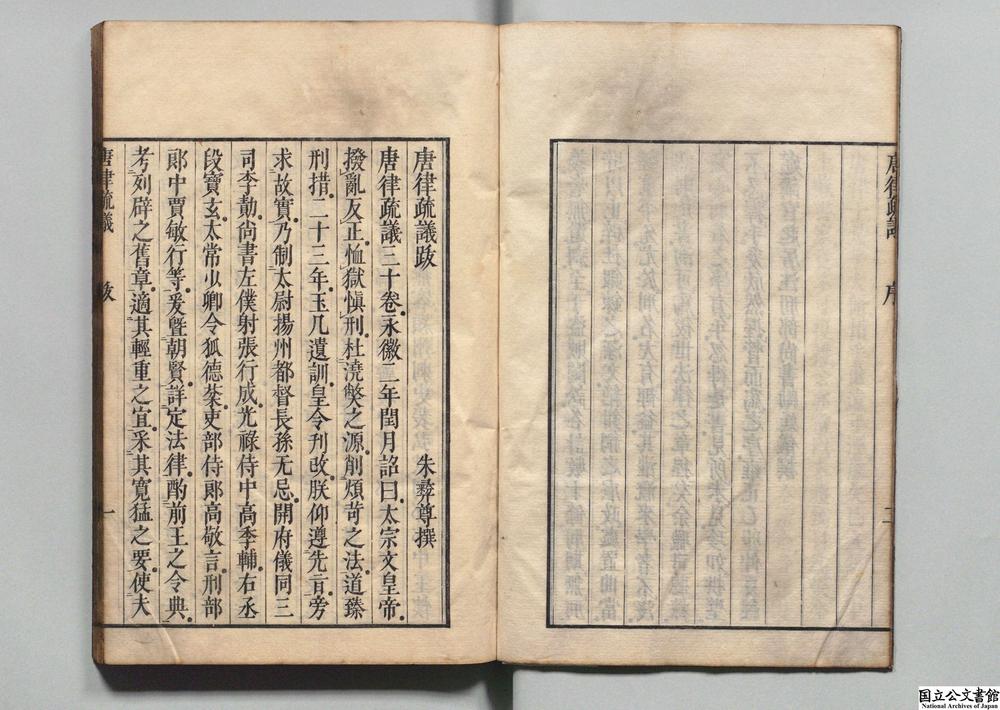 唐律疏議 序 二
唐律疏議跋 朱彝尊撰
唐律疏議三十卷永徽二年閏月詔曰太宗文皇帝
撥亂反正恤獄愼刑杜澆弊之源削煩苛之法道臻
刑措二十三年玉几遺訓皇令刋改朕仰遵先旨旁
求故實乃制太尉揚州都督長孫无忌開府儀同三
司李勣尙書左僕射張行成光祿侍中高季輔右丞
段寶玄太常少卿令狐德棻吏部侍郞高敬言刑部
郞中賈敏行等爰曁朝賢詳定法律酌前王之令典
考列辟之舊章適其輕重之宜采其寬猛之要使夫
唐律疏議 跋 一
国立公文書館
National Archives of Japan